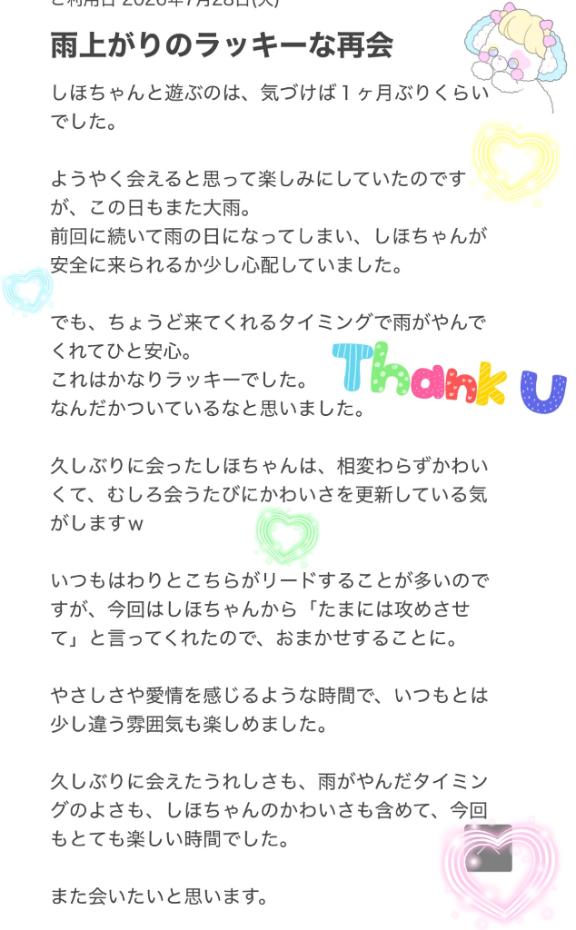 ご利用日 2026年7月28日(火)
雨上がりのラッキーな再会
しほちゃんと遊ぶのは、気づけば１ヶ月ぶりくらい
でした。
ようやく会えると思って楽しみにしていたのです
が、この日もまた大雨。
前回に続いて雨の日になってしまい、しほちゃんが
安全に来られるか少し心配していました。
でも、ちょうど来てくれるタイミングで雨がやんで
くれてひと安心。
これはかなりラッキーでした。
Thank U
なんだかついているなと思いました。
久しぶりに会ったしほちゃんは、相変わらずかわい
くて、むしろ会うたびにかわいさを更新している気
がしますｗ
いつもはわりとこちらがリードすることが多いので
すが、今回はしほちゃんから「たまには攻めさせ
て」と言ってくれたので、おまかせすることに。
やさしさや愛情を感じるような時間で、いつもとは
少し違う雰囲気も楽しめました。
久しぶりに会えたうれしさも、雨がやんだタイミン
グのよさも、しほちゃんのかわいさも含めて、今回
もとても楽しい時間でした。
また会いたいと思います。